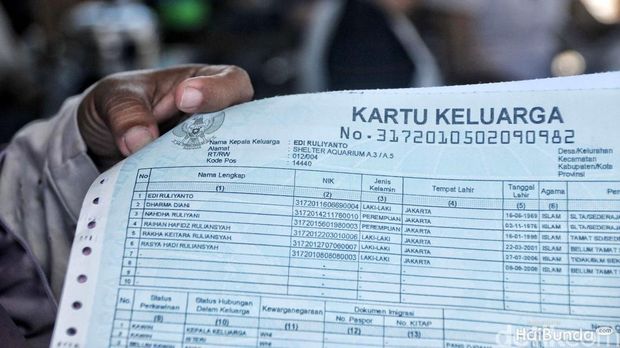 KARTU KELUARGA
No. 3172010502090982
Nama Kepala Keluarga : EDI RULIYANTO
Alamat : SHELTER AQUARIUM A.3 / A.5
RT/RW : 012/004
Kode Pos : 14440
Desa/Kelurahan
Kecamatan
Kabupaten/Kota
Provinsi
Nama Lengkap NIK Jenis Kelamin Tempat Lahir Tanggal Lahir Agama
(1) (2) (3) (4) (5) (6)
1 EDI RULIYANTO 3172011606690004 LAKI-LAKI JAKARTA 16-06-1969 ISLAM SLTA/SEDERAJA
2 DHARMA DIANI 3172014211760010 PEREMPUAN JAKARTA 03-11-1976 ISLAM SLTA/SEDERAJ
3 NAHDHA RULIYANI 3172015601980003 PEREMPUAN JAKARTA 16-01-1998 ISLAM TAMAT SD/SEDE
4 RAIHAN HAFIDZ RULIANSYAH 3172012203010006 LAKI-LAKI JAKARTA 22-03-2001 ISLAM BELUM TAMAT
5 RAKHA KEITARA RULIANSYAH 3172012707060007 LAKI-LAKI JAKARTA 27-07-2006 ISLAM TIDAK/BLM SEK
6 RASYA HADI RULIANSYAH 3172010808080003 LAKI-LAKI JAKARTA ISLAM BELUM TAMAT
7
8
9
10
Status Perkawinan Status Hubungan Dalam Keluarga Kewarganegaraan Dokumen Imigrasi
No. Paspor No. KITAP
(9) (10) (11) (12) (13)
KAWIN KEPALA KELUARGA WNI
KAWIN ISTERI WNI
HaiBunda.com